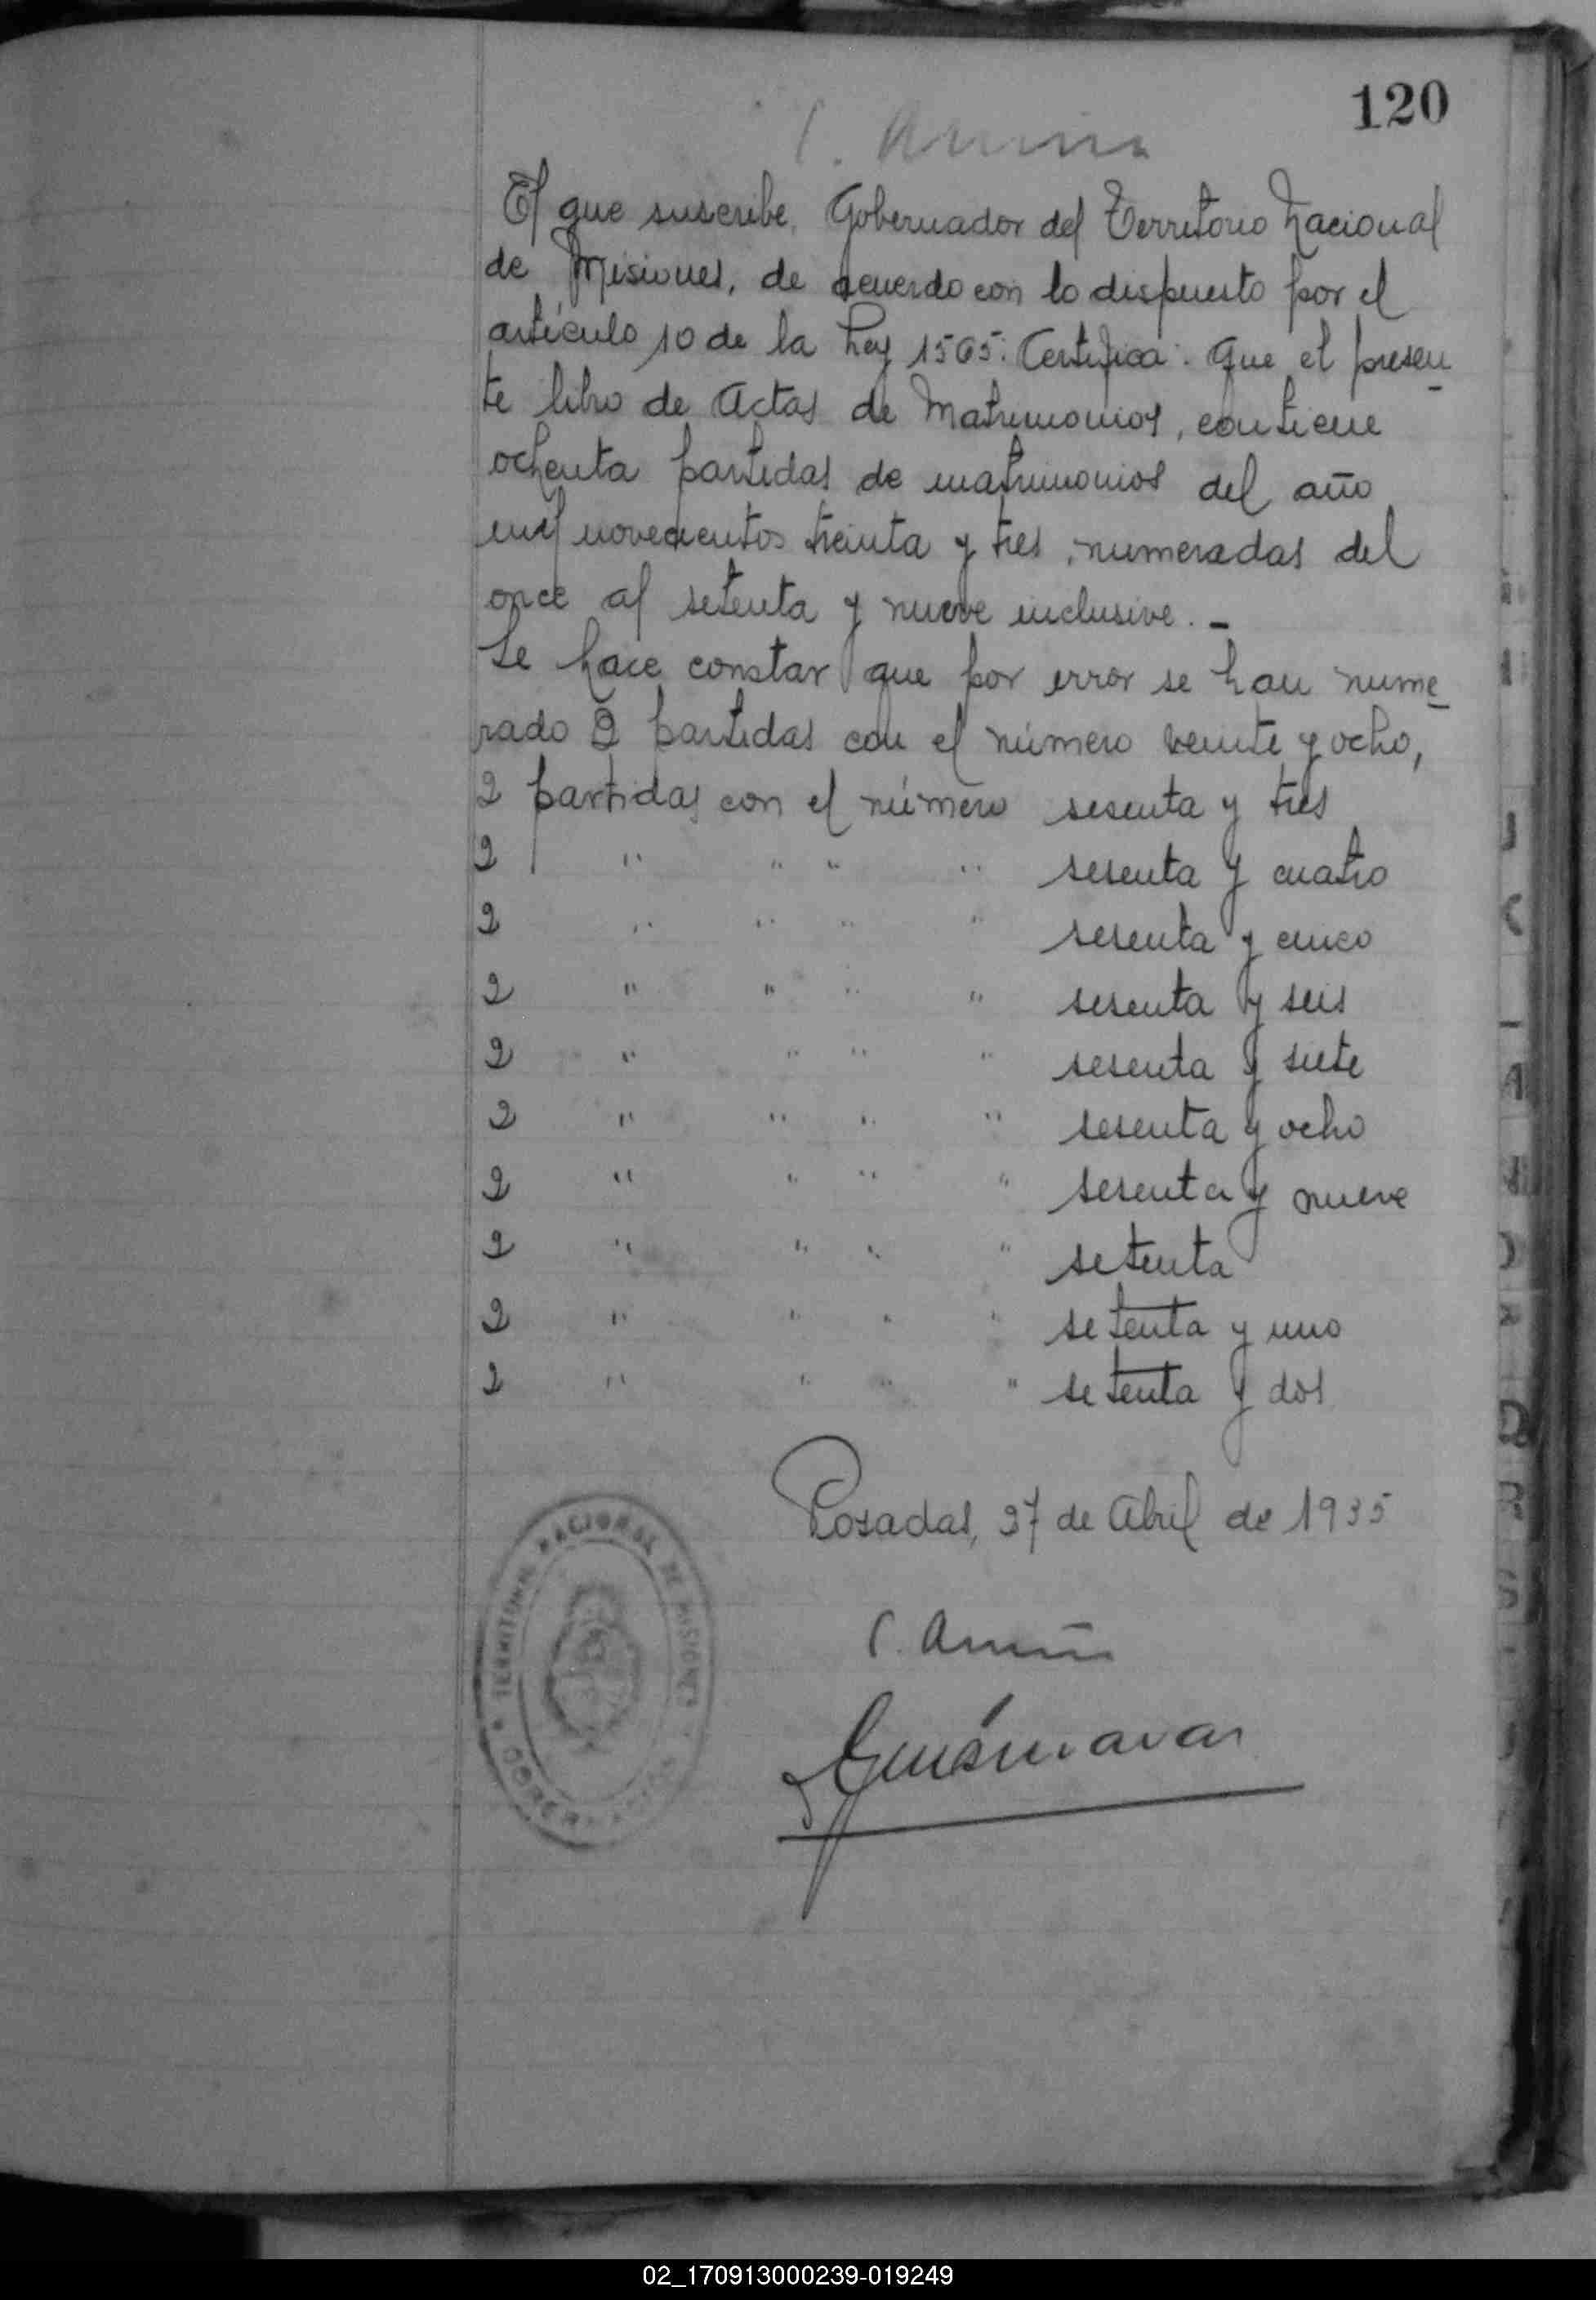 120
El que suscribe, Gobernador del Territorio Nacional
de Misiones, de acuerdo con lo dispuesto por el
artículo 10 de la Ley 1565: Certifica: Que el presen-
te libro de Actas de Matrimonios, contiene
ochenta partidas de matrimonios del año
mil novecientos treinta y tres, numeradas del
once al setenta y nueve inclusive. -
Se hace constar que por error se han nume-
rado 2 partidas con el número veinte y ocho,
2 partidas con el número sesenta y tres
2 " " " " sesenta y cuatro
2 " " " " sesenta y cinco
2 " " " " sesenta y seis
2 " " " " sesenta y siete
2 " " " " sesenta y ocho
2 " " " " sesenta y nueve
2 " " " " setenta
2 " " " " setenta y uno
2 " " " " setenta y dos
Posadas, 27 de Abril de 1935
TERRITORIO NACIONAL DE MISIONES
GOBERNACION
02_170913000239-019249